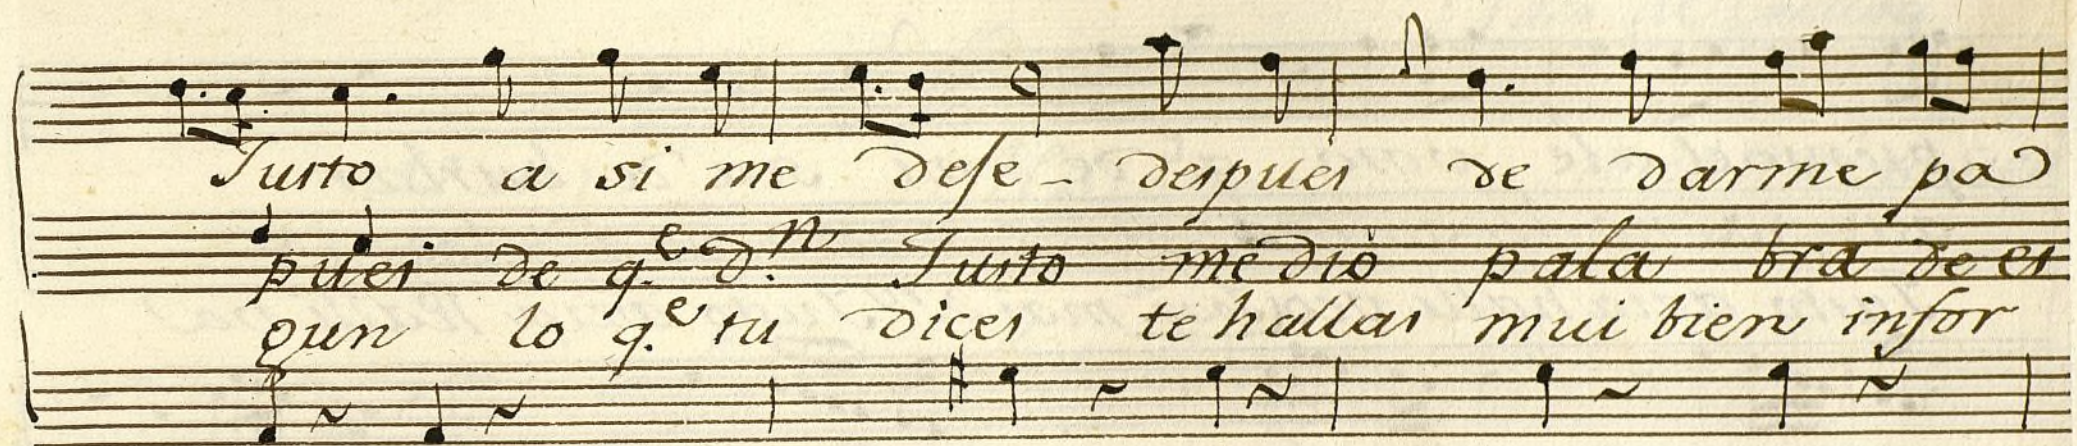 Justo a si me dese - despues de darme pa
pues de q.e d.n Justo me dio pala bra de es
gun lo q.e tu dices te hallas mui bien infor